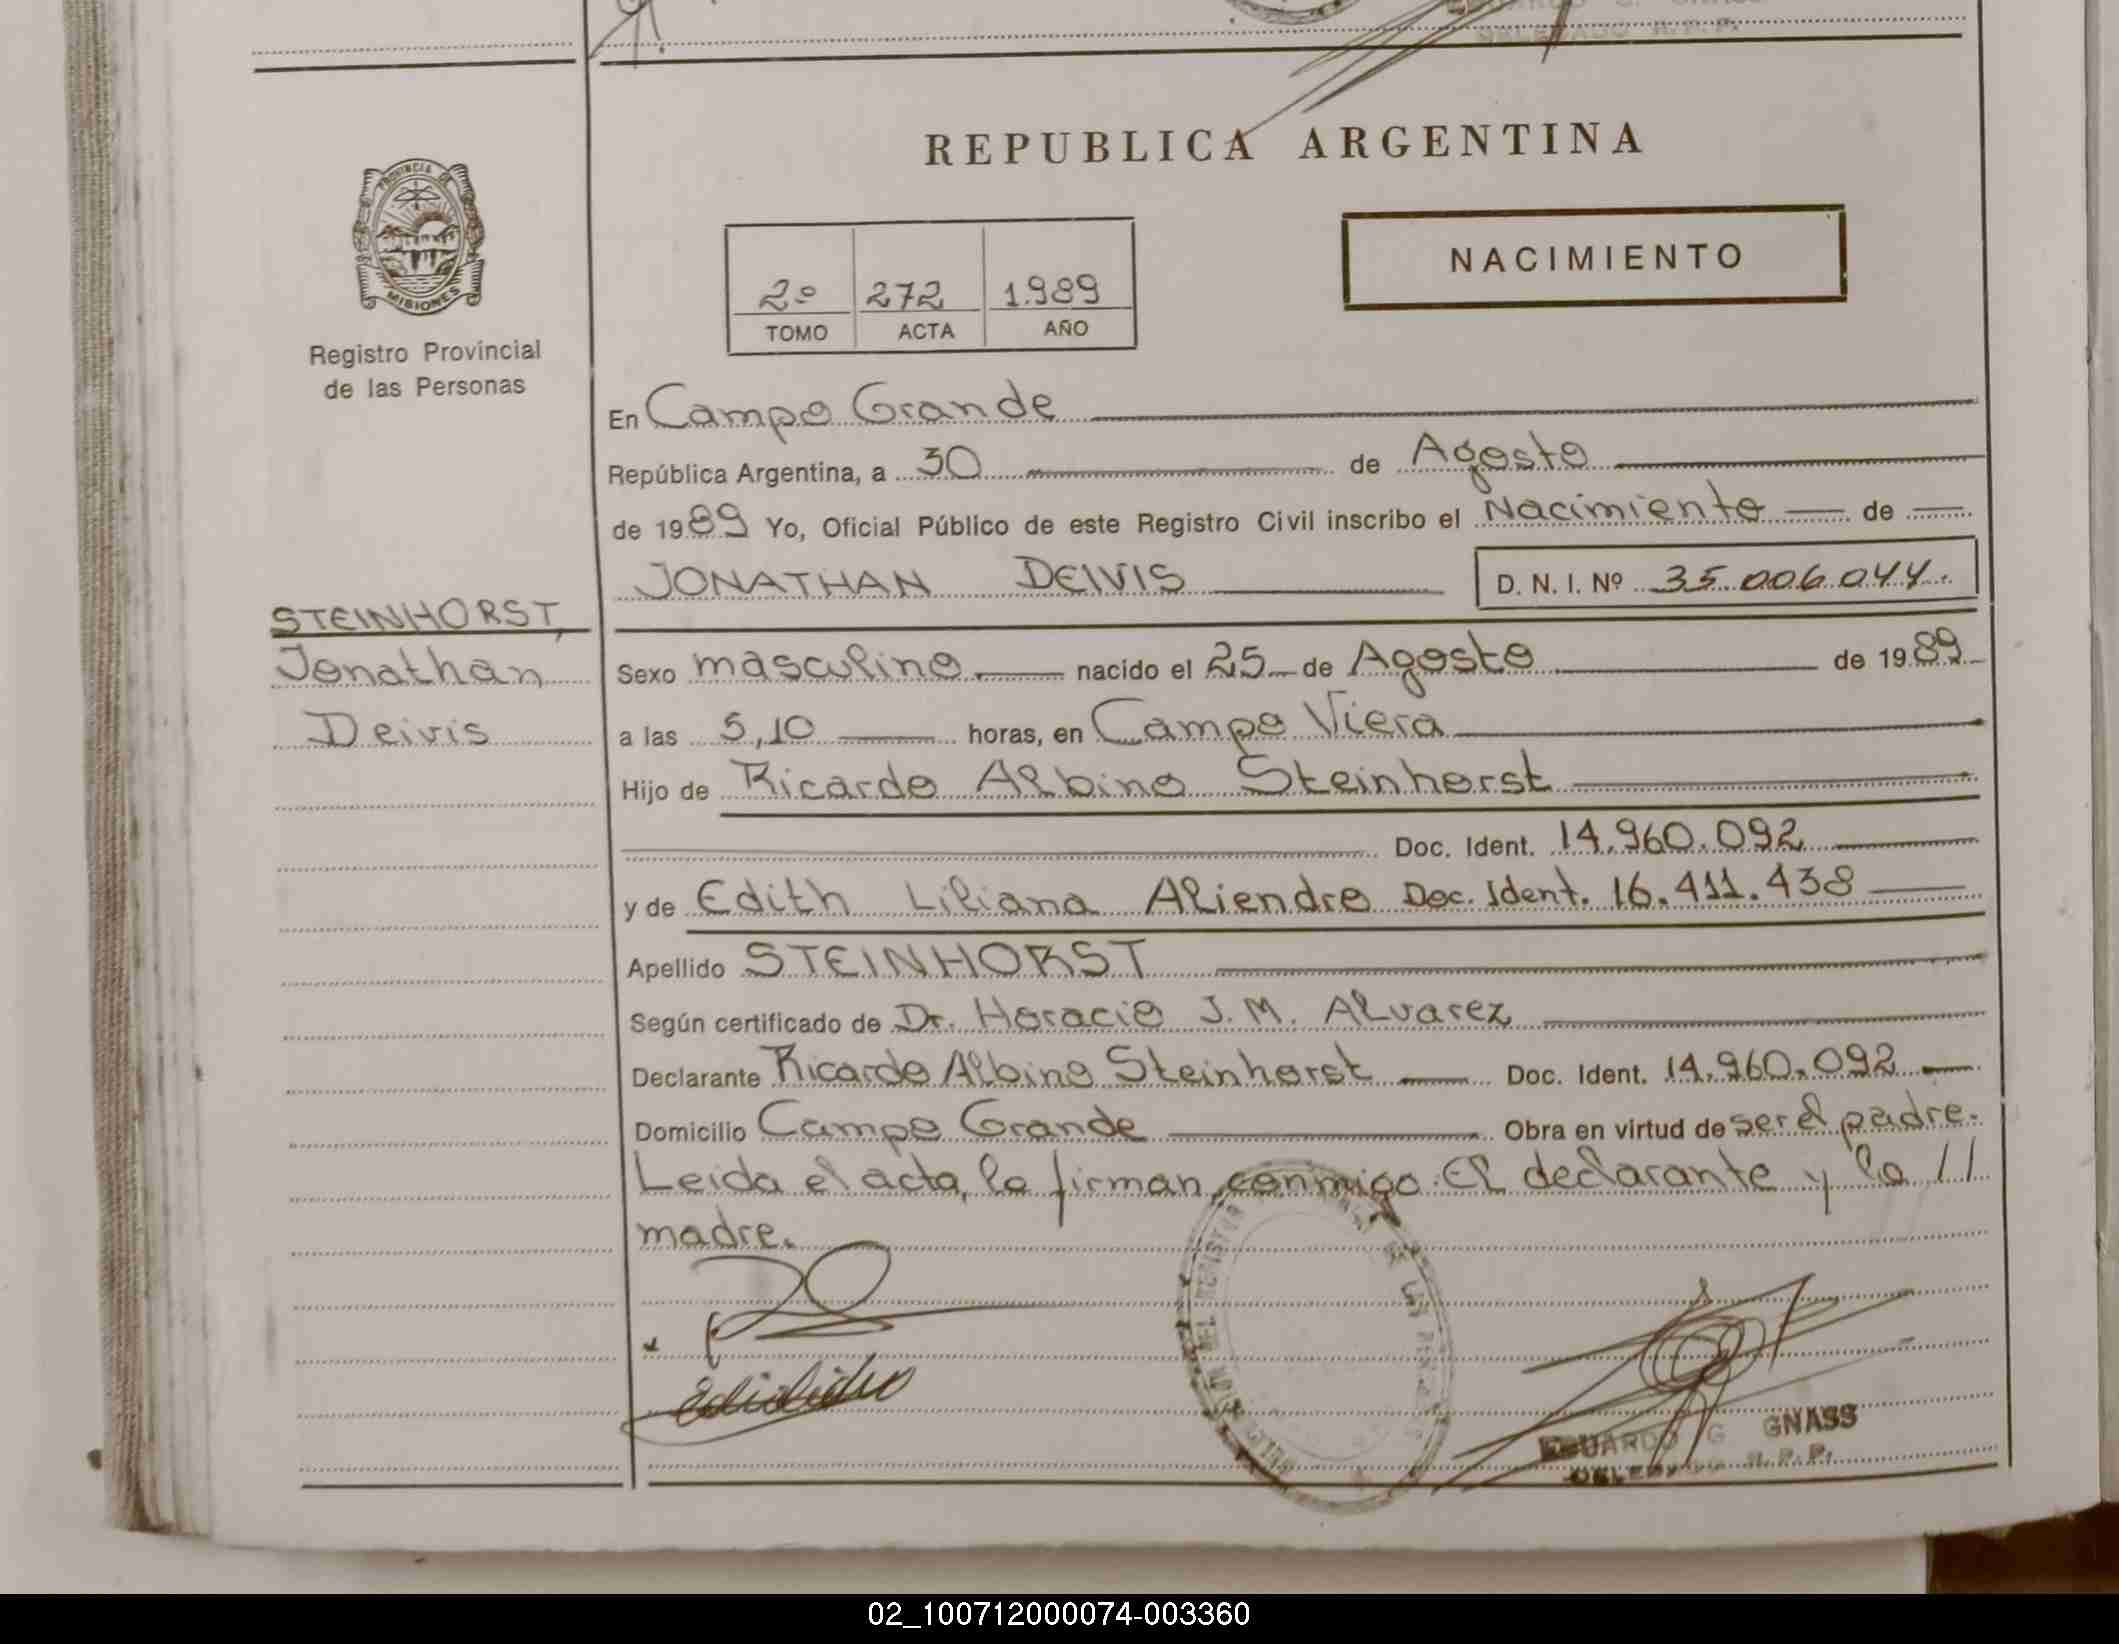 REPUBLICA ARGENTINA
PROVINCIA DE
MISIONES
Registro Provincial
de las Personas
NACIMIENTO
2º 272 1.989
TOMO ACTA AÑO
En Campo Grande
República Argentina, a 30 de Agosto
de 1989 Yo, Oficial Público de este Registro Civil inscribo el Nacimiento de
JONATHAN DEIVIS D. N. I. Nº 35.006.044.
STEINHORST,
Jonathan
Deivis
Sexo masculino nacido el 25 de Agosto de 1989
a las 5,10 horas, en Campo Viera
Hijo de Ricardo Albino Steinhorst
Doc. Ident. 14.960.092
y de Edith Liliana Aliendre Doc. Ident. 16.411.438
Apellido STEINHORST
Según certificado de Dr. Horacio J. M. Alvarez
Declarante Ricardo Albino Steinhorst Doc. Ident. 14.960.092
Domicilio Campo Grande Obra en virtud de ser el padre.
Leida el acta, la firman conmigo. El declarante y la //
madre.
EDUARDO G GNASS
DELEGADO R.P.P.
02_100712000074-003360